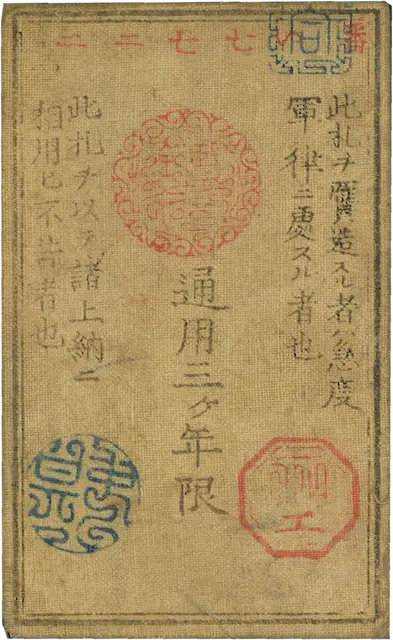 番八七七二二
此札ヲ贋造スル者ハ急度
軍律ニ處スル者也
通用三ケ年限
此札ヲ以テ諸上納ニ
相用ヒ不苦者也
工